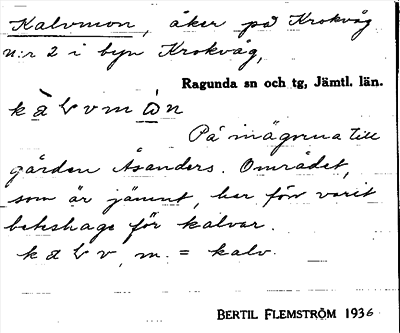 Kalvmon, åker på Krokvåg
N:r 2 i byn Krokvåg,
Ragunda sn och tg, Jämtl. län.
På inägorna till
gården Åsanders. Området,
som är jämnt, har förr varit
beteshage för kalvar.
m. = kalv.
BERTIL FLEMSTRÖM 1936